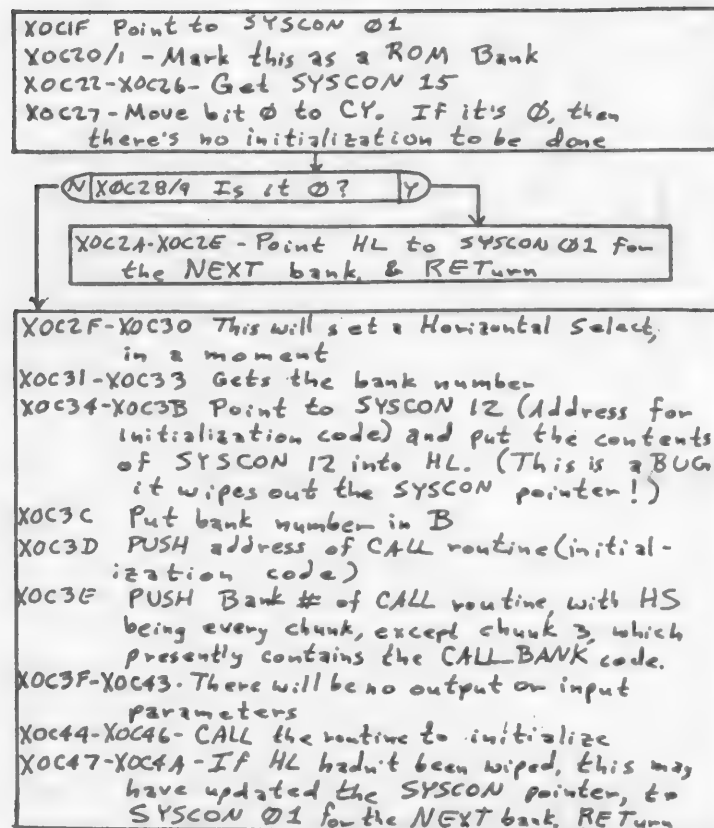 X0C1F Point to SYSCON Ø1
X0C20/1 - Mark this as a ROM Bank
X0C22-X0C26- Get SYSCON 15
X0C27-Move bit Ø to CY. If it's Ø, then
there's no initialization to be done
N XØC28/9 Is it Ø? Y
X0C2A-X0C2E - Point HL to SYSCON Ø1 for
the NEXT bank, & RETurn
X0C2F-X0C30 This will set a Horizontal Select,
in a moment
X0C31-X0C33 Gets the bank number
X0C34-X0C3B Point to SYSCON 12 (Address for
initialization code) and put the contents
of SYSCON 12 into HL. (This is a BUG
it wipes out the SYSCON pointer!)
X0C3C Put bank number in B
X0C3D PUSH address of CALL routine (initial-
ization code)
X0C3E PUSH Bank # of CALL routine, with HS
being every chunk, except chunk 3, which
presently contains the CALL_BANK code.
X0C3F-X0C43. There will be no output or input
parameters
X0C44-X0C46- CALL the routine to initialize
X0C47-X0C4A-If HL hadn't been wiped, this may
have updated the SYSCON pointer, to
SYSCON Ø1 for the NEXT bank, RETurn